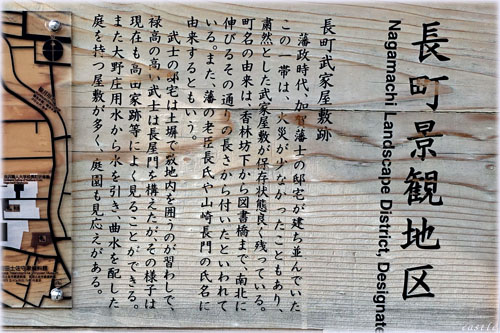 長町景観地区
Nagamachi Landscape District, Designate
長町武家屋敷跡
藩政時代、加賀藩士の邸宅が建ち並んでいた
この一帯は、火災が少なかったこともあり、
粛然とした武家屋敷が保存状態良く残っている。
町名の由来は、香林坊下から図書橋まで、南北に
伸びるその通りの長さから付いたといわれて
いる。また、藩の老臣長氏や山崎長門の氏名に
由来するともいう。
武士の邸宅は土塀で敷地内を囲うのが習わしで、
禄高の高い武士は長屋門を構えたが、その様子は
現在も高田家跡等によく見ることができる。
また大野庄用水から水を引き、曲水を配した
庭を持つ屋敷が多く、庭園も見応えがある。
castle